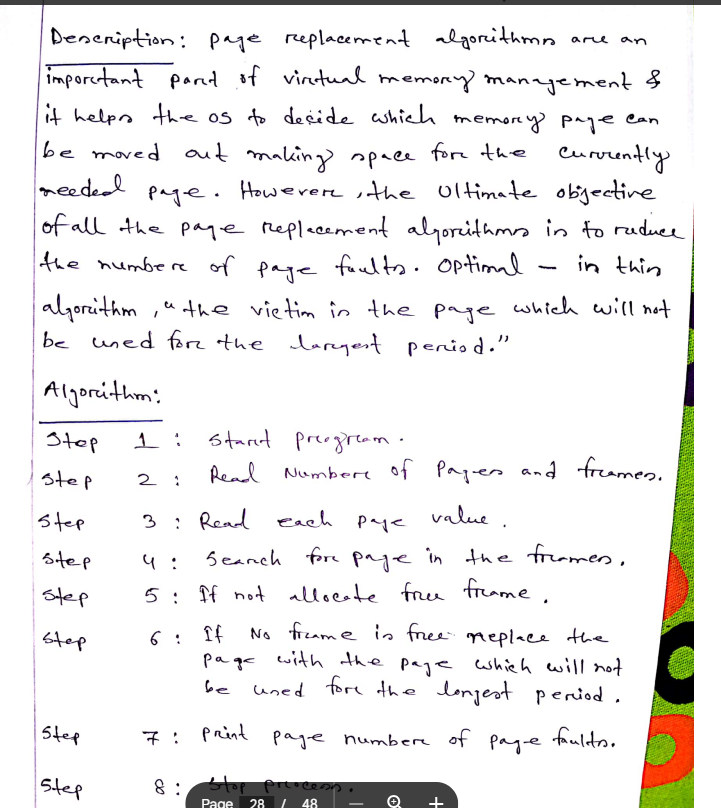 Description: page replacement algorithms are an
important part of virtual memory management &
it helps the os to decide which memory page can
be moved out making space for the currently
needed page. However, the Ultimate objective
of all the page replacement algorithms is to reduce
the number of page faults. Optimal – in this
algorithm, "the victim is the page which will not
be used for the largest period."
Algorithm:
Step 1: Start program.
Step 2: Read Number of Pages and frames.
Step 3: Read each page value.
Step 4: Search for page in the frames.
Step 5: If not allocate free frame.
Step 6: If No frame is free replace the
page with the page which will not
be used for the longest period.
Step 7: Print page number of page faults.
Step 8: Stop process.
Page 28 / 48 — +